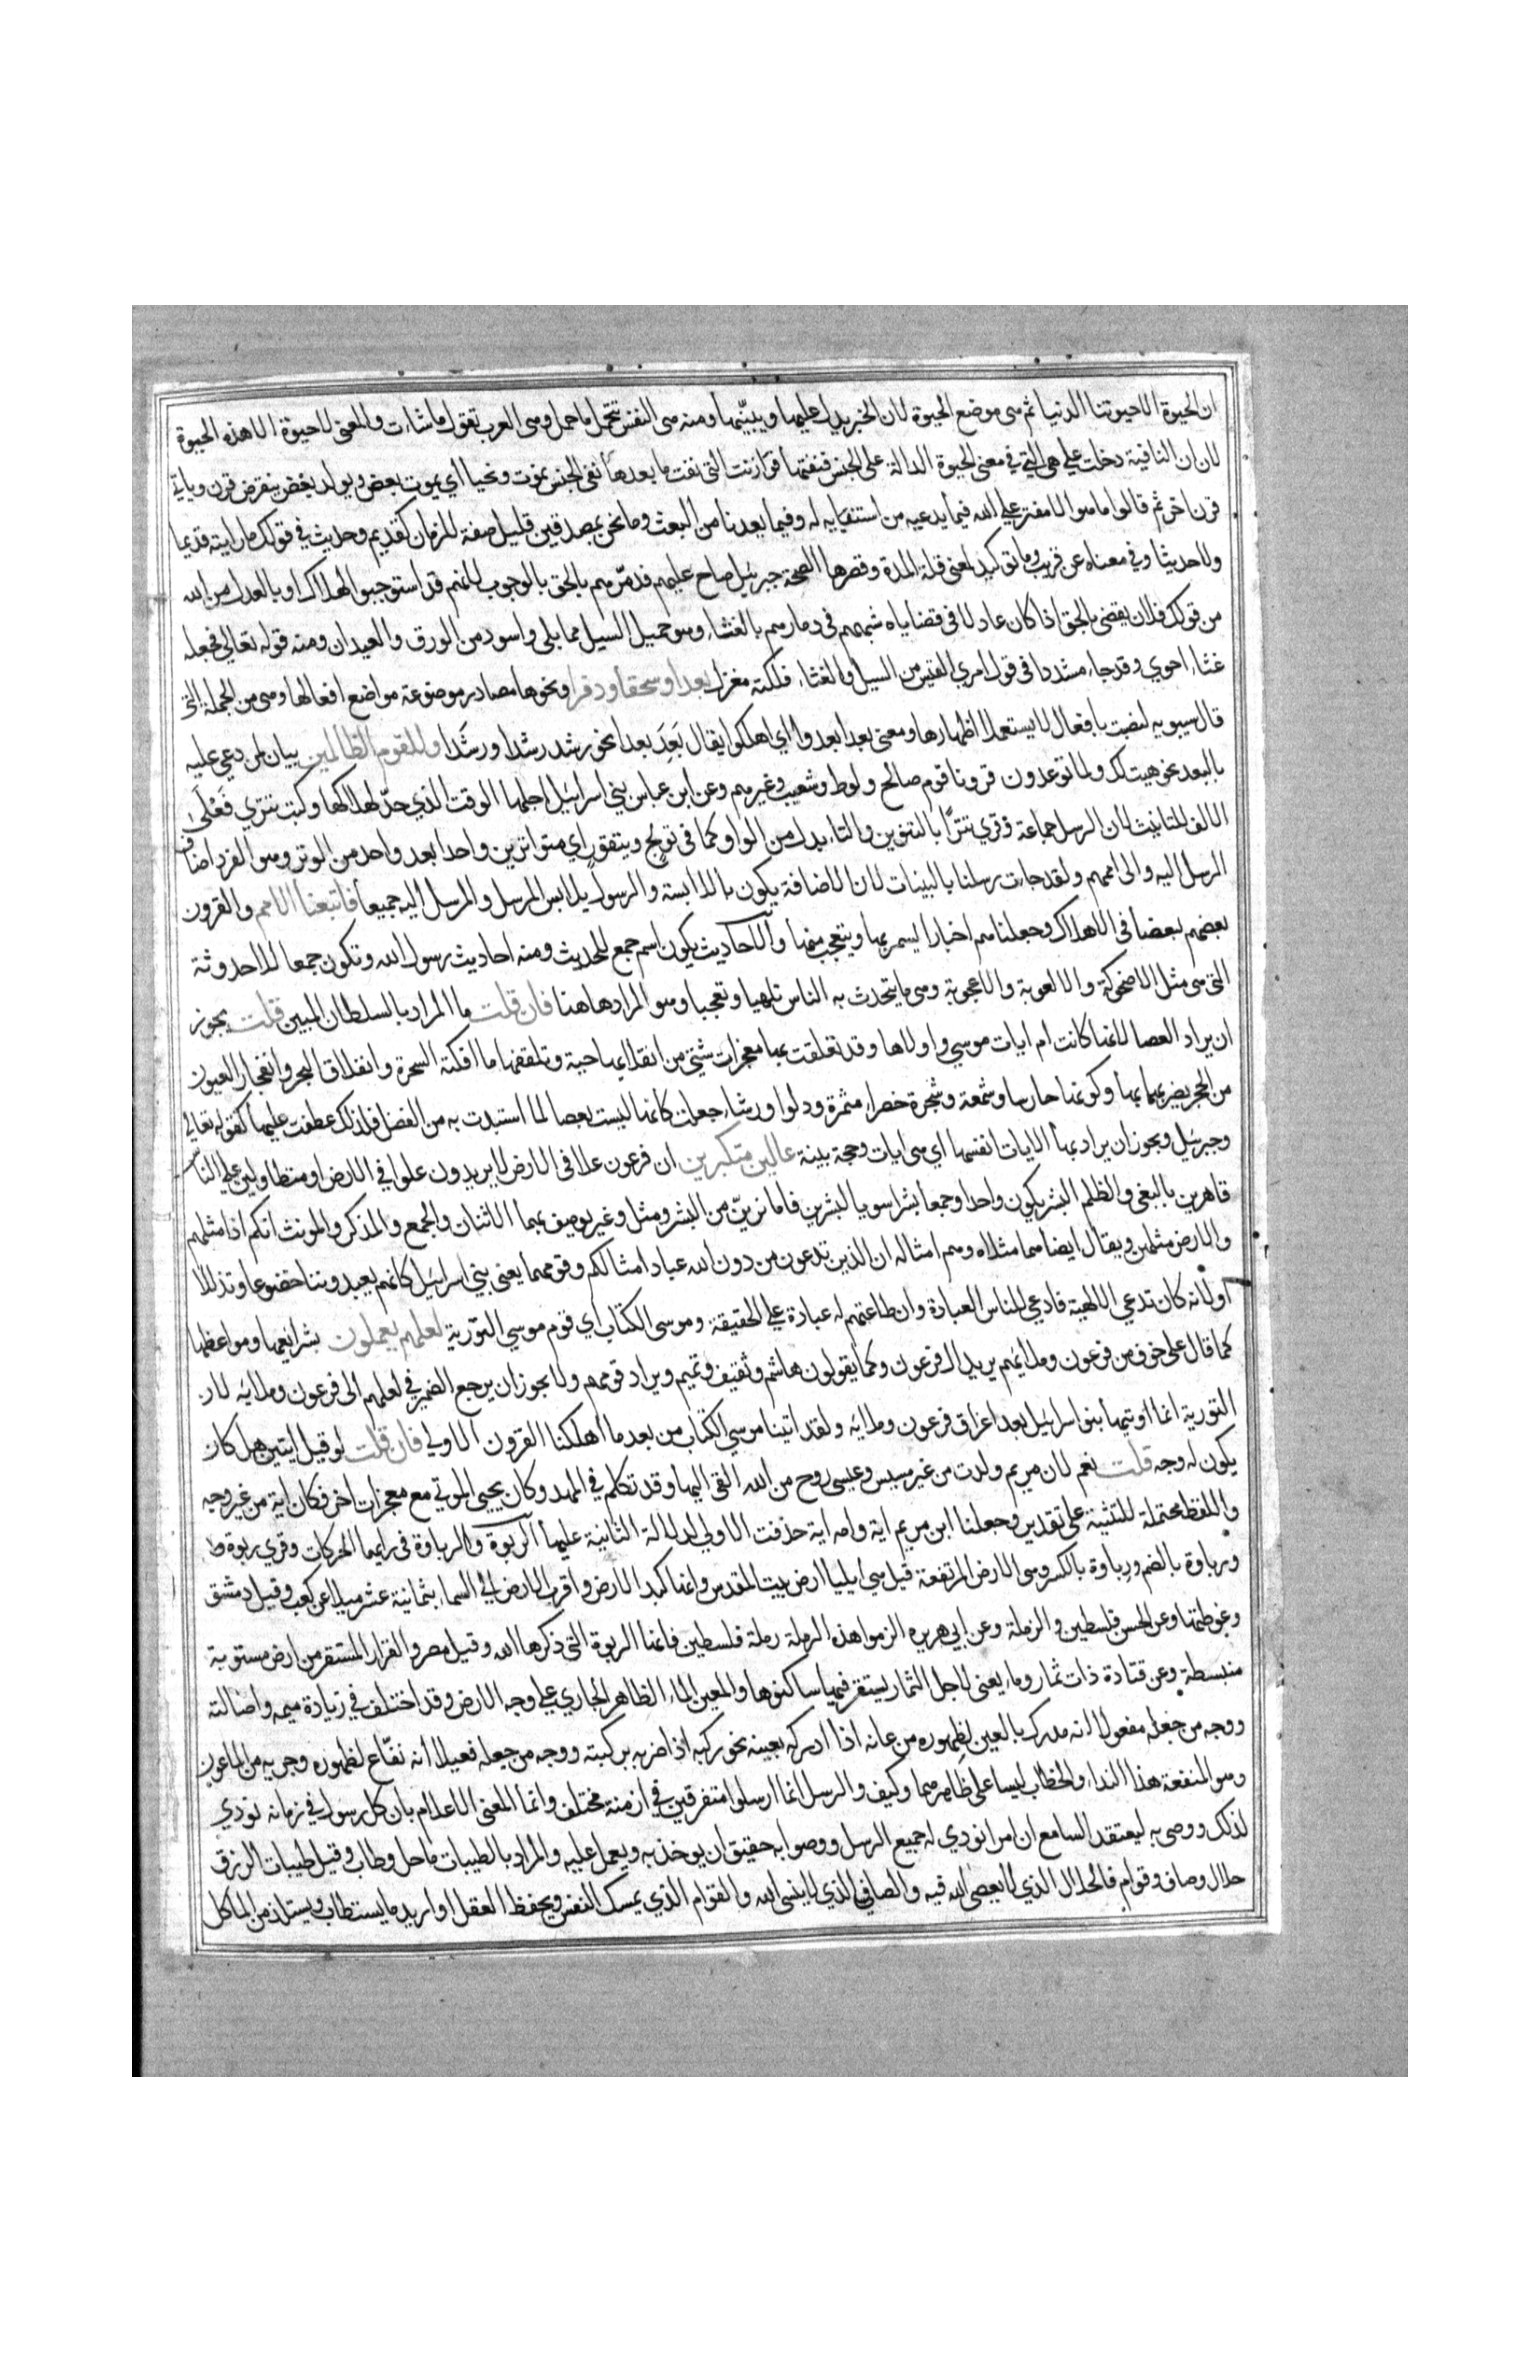 ان الحيوة الا حيوتنا الدنيا ثم هى موضع الحيوة لان الخبر يدل عليها ويبينها ومنه هى النفس تتحمل ما حمل وهى العرب تقول ما شاءت والمعنى لا حيوة الا هذه الحيوة
لان ان النافية دخلت على هى التي في معنى الحيوة الدالة على الجنس فنفتها فوازنت التى نفت ما بعدها نفى الجنس نموت ونحيا أي يموت بعض ويولد بعض ينقرض قرن وياتي
قرن اخر ثم قالوا ما هو الا مفتر على الله فيما يدعيه من استنبايه له وفيما يعدنا من البعث وما نحن بمصدقين قليل صفة للزمان كقديم وحديث في قولك ما رايته قديما
ولا حديثا وفي معناه عن قريب وما توكيد لمعنى قلة المدة وقصرها الصيحة جبرئيل صاح عليهم فدمرهم بالحق بالوجوب لانهم قد استوجبوا الهلاك او بالعدل من الله
من قولك فلان يقضى بالحق اذا كان عادلا فى قضاياه شبههم فى دمارهم بالغثاء وهو حميل السيل مما بلى واسود من الورق والعيدان ومنه قوله تعالى فجعله
غثاء احوي وقد جاء مشددا فى قول امري القيس من السيل والغثاء فلكة مغزل بعدا وسحقا ودفرا ونحوها مصادر موضوعة مواضع افعالها وهى من الجملة التى
قال سيبويه نصبت بافعال لا يستعمل اظهارها ومعنى بعدا بعدوا اي اهلكوا يقال بَعِدَ بعدا نحو رشد رشدا ورشدا وللقوم الظالمين بيان لمن دعي عليه
بالبعد نحو هيت لك ولما توعدون قرونا قوم صالح ولوط وشعيب وغيرهم وعن ابن عباس بني اسرائيل اجلها الوقت الذي حد لهلاكها وكتب تتري فَعْلَى
الالف للتانيث لان الرسل جماعة وقري تترًا بالتنوين والتاء بدل من الواو كما فى تولج وتيقور اي متواترين واحدا بعد واحد من الوتر وهو الفرد اضاف
الرسل اليه والى اممهم ولقد جات رسلنا بالبينات لان الاضافة يكون بالملابسة والرسول يلابس المرسل والمرسل اليه جميعا فاتبعنا الامم والقرون
بعضهم بعضا فى الاهلاك وجعلناهم اخبارا يسمر بها ويتعجب منها والاحاديث يكون اسم جمع للحديث ومنه احاديث رسول الله وتكون جمعا للاحدوثة
التى هى مثل الاضحوكة والالعوبة والاعجوبة وهى ما يتحدث به الناس تلهيا وتعجبا وهو المراد هاهنا فان قلت ما المراد بالسلطان المبين قلت يجوز
ان يراد العصا لانها كانت ام ايات موسي واولاها وقد تعلقت بها معجزات شتى من انقلابها حية وتلقفها ما افكته السحرة وانفلاق البحر وانفجار العيون
من الحجر بضربهما بها وكونها حارسا وشمعة وشجرة خضراء مثمرة ودلوا ورشاء جعلت كانها ليست بعصا لما استبدت به من الفضل فلذلك عطفت عليها كقوله تعالي
وجبرئيل ويجوز ان يراد بها الايات انفسها اي هى ايات وحجة بينة عالين متكبرين ان فرعون علا فى الارض لا يريدون علوا في الارض او متطاولين على الناس
قاهرين بالبغى والظلم البشر يكون واحدا وجمعا بشرا سويا لبشرين فاما ترين من البشر ومثل وغير يوصف بهما الاثنان والجمع والمذكر والمونث انكم اذا مثلهم
والارض مثلهن ويقال ايضا هما مثلاه وهم امثاله ان الذين تدعون من دون الله عباد امثالكم وقومهما يعنى بني اسرائيل كانهم يعبدوننا خضوعا وتذللا
او لانه كان تدعي الالهية فادعي للناس العبادة وان طاعتهم له عبادة على الحقيقة وموسى الكتاب اي قوم موسي التورية لعلهم يعملون بشرائعها ومواعظها
كما قال على خوف من فرعون وملائهم يريد ال فرعون وكما يقولون هاشم وثقيف وتميم ويراد قومهم ولا يجوز ان يرجع الضمير في لعلهم الى فرعون وملائه لان
التورية انما اوتيها بنو اسرائيل بعد اغراق فرعون وملائه ولقد اتينا موسي الكتاب من بعد ما اهلكنا القرون الاولي فان قلت لو قيل ايتين هل كان
يكون له وجه قلت نعم لان مريم ولدت من غير مسيس وعيسى روح من الله القي اليها وقد تكلم في المهد وكان يحيي الموتي مع معجزات اخر فكان اية من غير وجه
واللفظ محتملة للتثنية على تقدير وجعلنا ابن مريم اية وامه اية حذفت الاولي لدلالة الثانية عليها الربوة والرباوة فى رايهما الحركات وقري ربوة
ورباوة بالضم ورباوة بالكسر وهى الارض المرتفعة قيل هي ايليا ارض بيت المقدس وانها كبد الارض واقرب الارض الي السماء بثمانية عشر ميلا عن كعب وقيل دمشق
وغوطتها وعن الحسن فلسطين والرملة وعن ابي هريره الزموا هذه الرملة رملة فلسطين فانها الربوة التى ذكرها الله وقيل مصر والقرار المستقر من ارض مستوية
منبسطة وعن قتادة ذات ثمار وماء يعنى لاجل الثمار يستقر فيها ساكنوها والمعين الماء الظاهر الجاري على وجه الارض وقد اختلف في زيادة ميمه واصالته
ووجه من جعله مفعولا انه مدرك بالعين لظهوره من عانه اذا ادركه بعينه نحو ركبه اذا ضربه بركبته ووجه من جعله فعيلا انه نفّاع لظهوره وجريه من الماعون
وهو المنفعة هذا النداء والخطاب ليسا على ظاهرهما وكيف والرسل انما ارسلوا متفرقين في ازمنة مختلف وانما المعنى الاعلام بان كل رسول في زمانه نودي
لذلك ووصى به ليعتقد السامع ان امرا نودي له جميع الرسل ووصوا به حقيق ان يوخذ به ويعمل عليه والمراد بالطيبات ما حل وطاب وقيل طيبات الرزق
حلال وصاف وقوام فالحلال الذي لا يعصى الله فيه والصافي الذي لا ينسى الله والقوام الذي يمسك النفس ويحفظ العقل او اريد ما يستطاب ويستلذ من الماكل